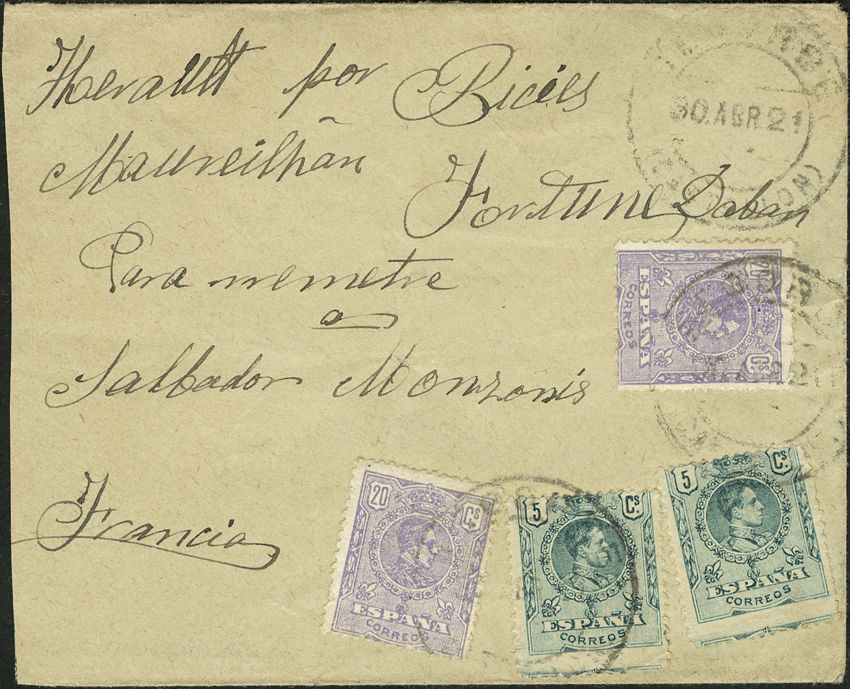 Herault por Bicies
Maureilhan
Fortune Daban
Para remetre
a
Salbador Monzonis
Francia
30 ABR 21
20 Cs
ESPAÑA
CORREOS
20 Cs
ESPAÑA
CORREOS
5 Cs
ESPAÑA
CORREOS
5 Cs
ESPAÑA
CORREOS